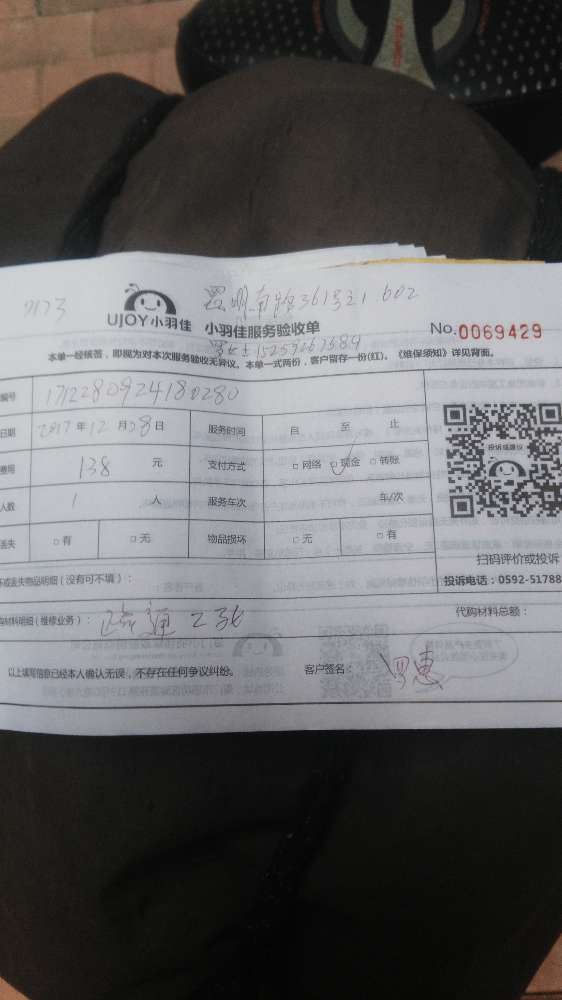 UJOY小羽佳 小羽佳服务验收单 No.0069429
本单一经核签，即视为对本次服务验收无异议。本单一式两份，客户留存一份(红)。《维保须知》详见背面。
编号 1712280924180280
日期 2017 年 12 月 28 日 服务时间 自 至 止
费用 138 元 支付方式 □网络 □现金 □转账
人数 1 人 服务车次 车/次
丢失 □有 □无 物品损坏 □无 □有
投诉或建议
扫码评价或投诉
投诉电话：0592-51788
坏或丢失物品明细（没有可不填）：
购材料明细（维修业务）： 疏通 代购材料总额：
以上填写信息已经本人确认无误，不存在任何争议纠纷。 客户签名：